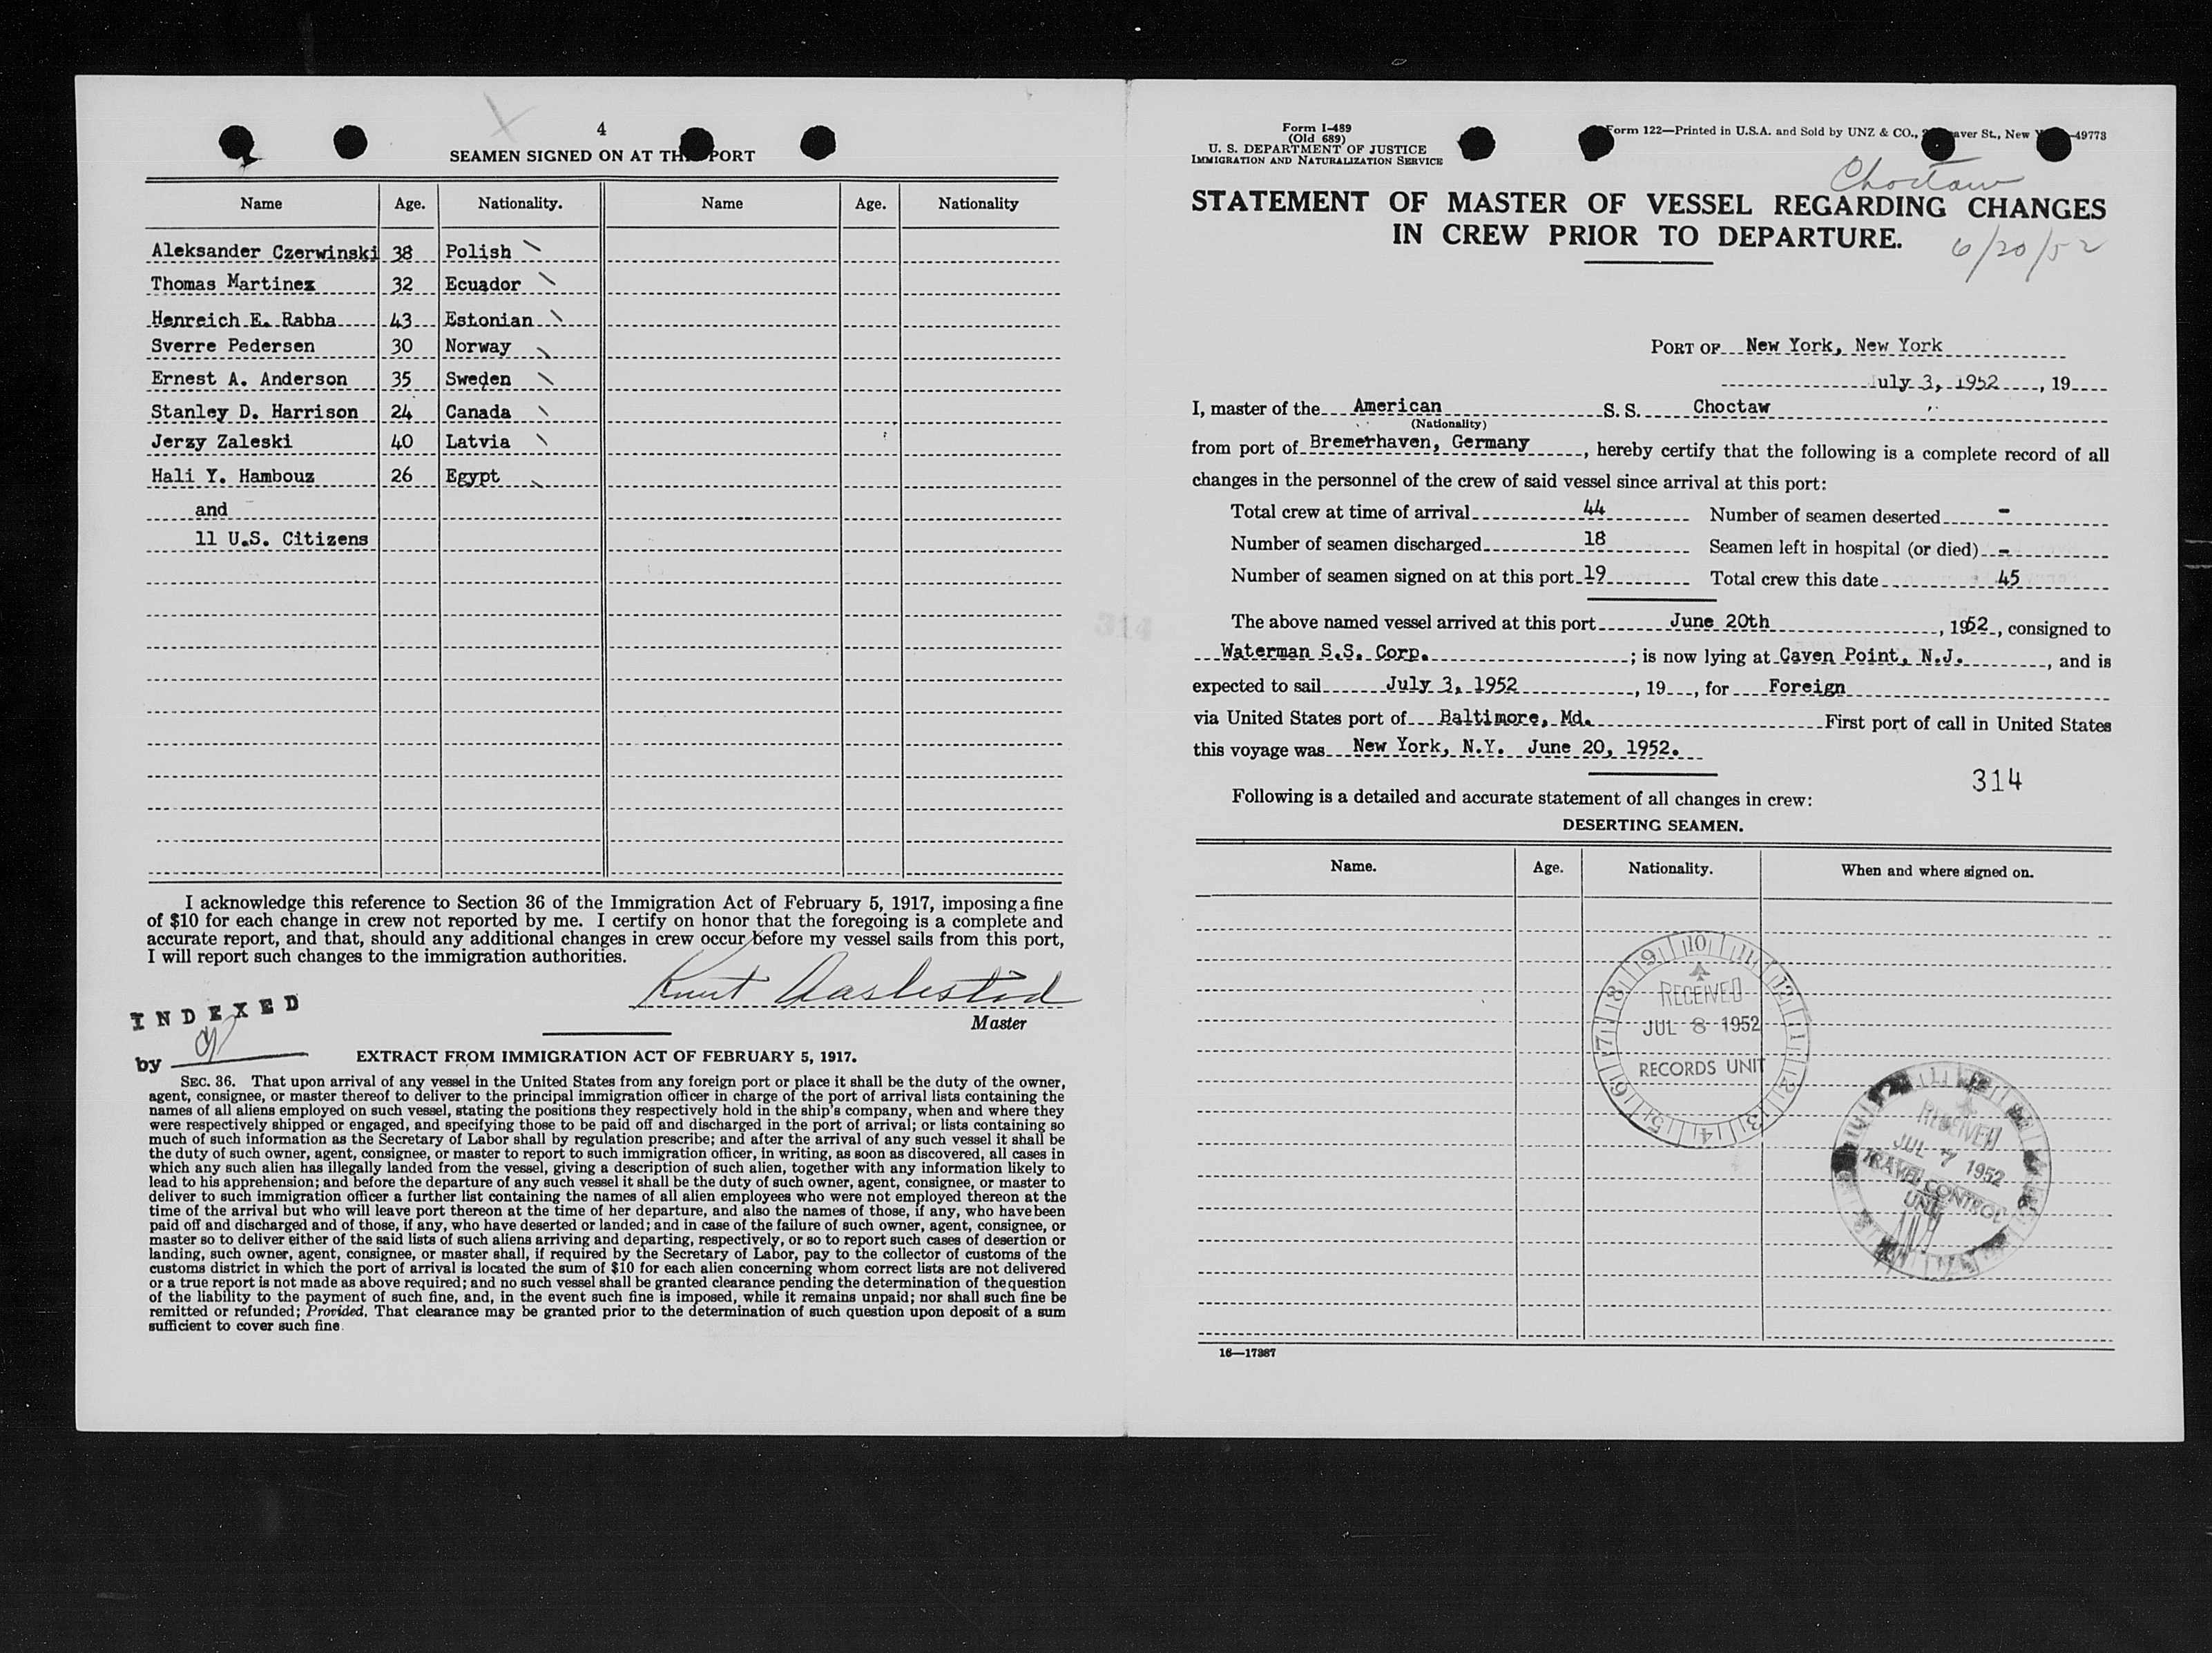 4
SEAMEN SIGNED ON AT THIS PORT
Name Age. Nationality. Name Age. Nationality
Aleksander Czerwinski 38 Polish
Thomas Martinez 32 Ecuador
Henreich E. Rabha 43 Estonian
Sverre Pedersen 30 Norway
Ernest A. Anderson 35 Sweden
Stanley D. Harrison 24 Canada
Jerzy Zaleski 40 Latvia
Hali Y. Hambouz 26 Egypt
and
11 U.S. Citizens
I acknowledge this reference to Section 36 of the Immigration Act of February 5, 1917, imposing a fine
of $10 for each change in crew not reported by me. I certify on honor that the foregoing is a complete and
accurate report, and that, should any additional changes in crew occur before my vessel sails from this port,
I will report such changes to the immigration authorities.
Knut
Master
INDEXED
by
EXTRACT FROM IMMIGRATION ACT OF FEBRUARY 5, 1917.
SEC. 36. That upon arrival of any vessel in the United States from any foreign port or place it shall be the duty of the owner,
agent, consignee, or master thereof to deliver to the principal immigration officer in charge of the port of arrival lists containing the
names of all aliens employed on such vessel, stating the positions they respectively hold in the ship's company, when and where they
were respectively shipped or engaged, and specifying those to be paid off and discharged in the port of arrival; or lists containing so
much of such information as the Secretary of Labor shall by regulation prescribe; and after the arrival of any such vessel it shall be
the duty of such owner, agent, consignee, or master to report to such immigration officer, in writing, as soon as discovered, all cases in
which any such alien has illegally landed from the vessel, giving a description of such alien, together with any information likely to
lead to his apprehension; and before the departure of any such vessel it shall be the duty of such owner, agent, consignee, or master to
deliver to such immigration officer a further list containing the names of all alien employees who were not employed thereon at the
time of the arrival but who will leave port thereon at the time of her departure, and also the names of those, if any, who have been
paid off and discharged and of those, if any, who have deserted or landed; and in case of the failure of such owner, agent, consignee, or
master so to deliver either of the said lists of such aliens arriving and departing, respectively, or so to report such cases of desertion or
landing, such owner, agent, consignee, or master shall, if required by the Secretary of Labor, pay to the collector of customs of the
customs district in which the port of arrival is located the sum of $10 for each alien concerning whom correct lists are not delivered
or a true report is not made as above required; and no such vessel shall be granted clearance pending the determination of the question
of the liability to the payment of such fine, and, in the event such fine is imposed, while it remains unpaid; nor shall such fine be
remitted or refunded; Provided, That clearance may be granted prior to the determination of such question upon deposit of a sum
sufficient to cover such fine.
Form I-489
(Old 689)
U. S. DEPARTMENT OF JUSTICE
IMMIGRATION AND NATURALIZATION SERVICE
Form 122—Printed in U.S.A. and Sold by UNZ & CO., aver St., New Y —49773
Choctaw
STATEMENT OF MASTER OF VESSEL REGARDING CHANGES
IN CREW PRIOR TO DEPARTURE.
6/20/52
PORT OF New York, New York
uly 3, 1952, 19
I, master of the American S. S. Choctaw
(Nationality)
from port of Bremerhaven, Germany, hereby certify that the following is a complete record of all
changes in the personnel of the crew of said vessel since arrival at this port:
Total crew at time of arrival 44 Number of seamen deserted -
Number of seamen discharged 18 Seamen left in hospital (or died) -
Number of seamen signed on at this port 19 Total crew this date 45
The above named vessel arrived at this port June 20th, 1952, consigned to
Waterman S.S. Corp. ; is now lying at Caven Point, N.J., and is
expected to sail July 3, 1952, 19, for Foreign
via United States port of Baltimore, Md. First port of call in United States
this voyage was New York, N.Y. June 20, 1952.
314
Following is a detailed and accurate statement of all changes in crew:
DESERTING SEAMEN.
Name. Age. Nationality. When and where signed on.
RECEIVED
JUL 8 1952
RECORDS UNIT
RECEIVED
JUL 7 1952
TRAVEL CONTROL
UNIT
16—17387